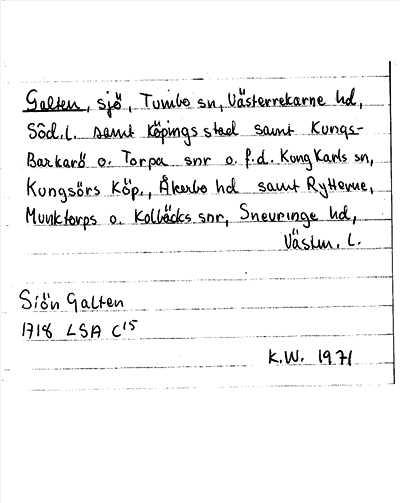 Galten, sjö, Tumbo sn, Västerrekarne hd,
Söd. l. samt Köpings stad samt Kungs-
Barkarö o. Torpa snr o. f.d. Kung Karls sn,
Kungsörs Köp., Åkerbo hd samt Rytterne,
Munktorps o. Kolbäcks snr, Snevringe hd,
Västm. l.
Siön Galten
1718 LSA C15
K.W. 1971